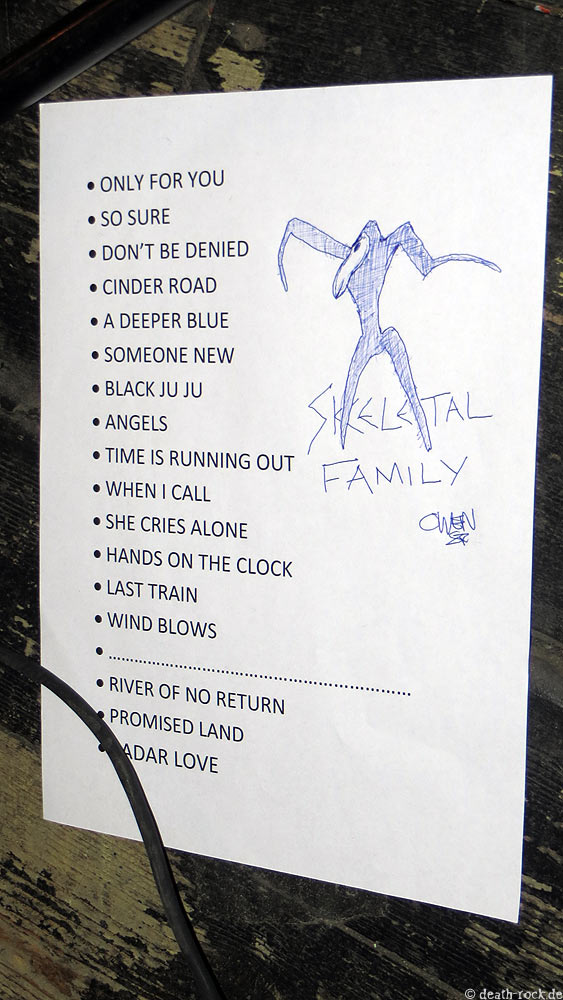 • ONLY FOR YOU
• SO SURE
• DON'T BE DENIED
• CINDER ROAD
• A DEEPER BLUE
• SOMEONE NEW
• BLACK JU JU
• ANGELS
• TIME IS RUNNING OUT
• WHEN I CALL
• SHE CRIES ALONE
• HANDS ON THE CLOCK
• LAST TRAIN
• WIND BLOWS
• ..........................................................
• RIVER OF NO RETURN
• PROMISED LAND
• ADAR LOVE
SKELETAL
FAMILY
OWEN
© death-rock.de